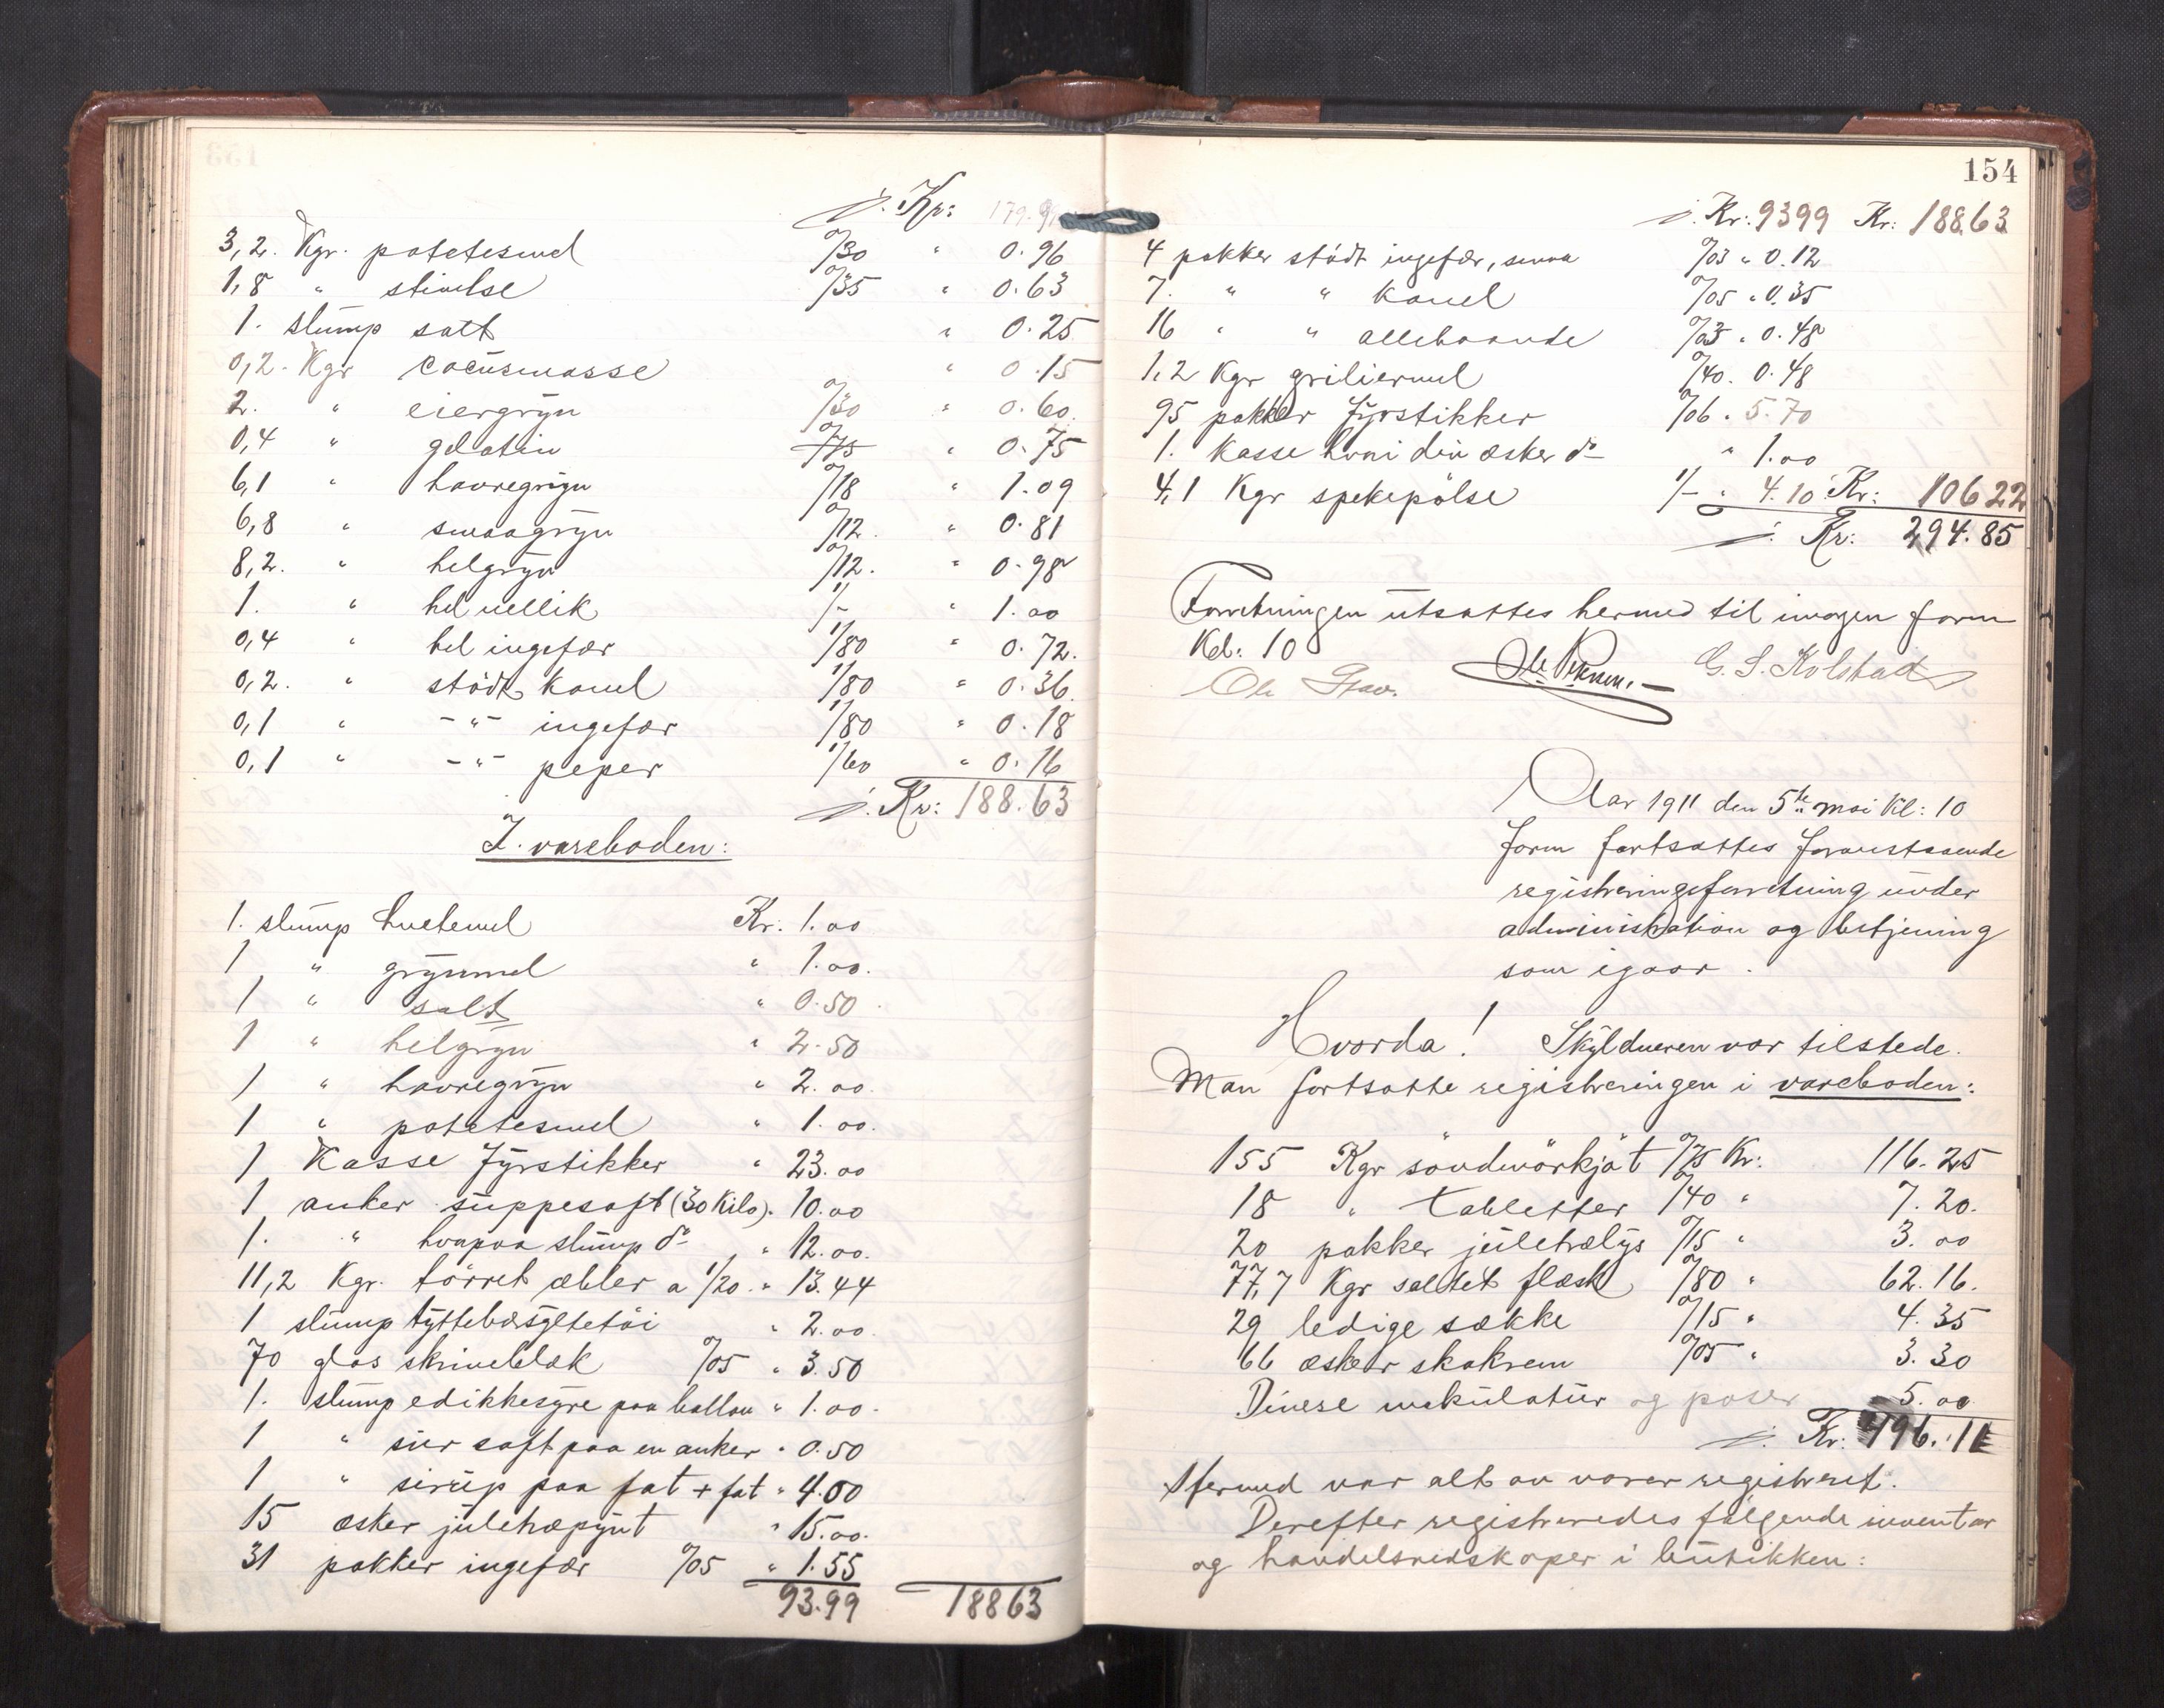 j. Kr: 179.9
3,2. Kgr. potetesmel 0/30 " 0.96
1,8 " stivelse 0/35 " 0.63
1. slump salt " 0.25
0,2. Kgr cocusmasse " 0.15
2. " eiergryn 0/30 " 0.60.
0,4 " gelatin " 0.75
6,1 " havregryn 0/18 " 1.09
6,8 " smaagryn 0/12. " 0.81
8,2. " helgryn 0/12. " 0.98
1. " hel nellik 1/- " 1.00
0,4 " hel ingefær 1/80 " 0.72.
0,2. " stödt kanel 1/80 " 0.36.
0,1 " -"- ingefær 1/80 " 0.18
0,1 " -"- peper 1/60 " 0.16
j. Kr: 188.63
I. vareboden:
1. slump hvetemel Kr: 1.00
1 " grynmel " 1.00.
1 " salt " 0.50.
1 " helgryn " 2.50
1 " havregryn " 2.00.
1 " potetesmel " 1.00.
1 Kasse fyrstikker " 23.00
1 anker suppesaft (30 Kilo). 10.00
1. " hvorpaa slump do " 12.00.
11,2 Kgr. törret æbler a 1/20. " 13.44
1 slump tyttebærsyltetöi " 2.00.
70 glas skriveblæk 0/05 " 3.50
1. slump edikkesyre paa ballon " 1.00.
1 " sur saft paa en anker " 0.50
1 " sirup paa fat + fat " 4.00
15 æsker juletræpynt " 15.00.
31 pakker ingefær 0/05 " 1.55
93.99 18863
154
j. Kr: 9399 Kr: 188.63
4 pakker stödt ingefær, smaa 0/03 " 0.12
7. " " Kanel 0/05 " 0.35
16 " " allehaande 0/03 " 0.48
1,2 Kgr griliermel 0/40. 0.48
95 pakker fyrstikker 0/06 " 5.70
1. Kasse hvori div æsker do " 1.00
4,1 Kgr spekepölse 1/- " 4.10 Kr: 10622
j. Kr: 294.85
Forretningen utsattes hermed til imorgen form
Kl: 10
Ole G. S. Kolstad
Aar 1911 den 5te mai Kl: 10
form fortsattes foranstaaende
registreringsforretning under
administration og betjening
som igaar.
Hvorda! Skyldneren var tilstede.
Man fortsatte registreringen i vareboden:
155 Kgr söndmörkjöt 0/75 Kr: 116.25
18 " tabletter 0/40 " 7.20.
20 pakker juletrælys 0/15 " 3.00
77,7 Kgr saltet flæsk 0/80 " 62.16.
29 ledige sække 0/15 " 4.35
66 æsker skokrem 0/05 " 3.30
Diverse makulatur og poser 5.00
j. Kr: 496.11
Hermed var alt av varer registreret.
Derefter registreredes fölgende inventar
og handelsredskaper i butikken: